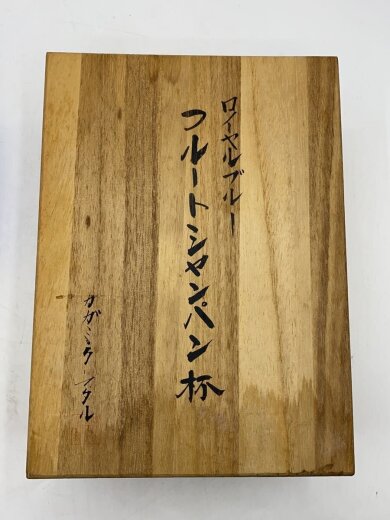 ロイヤルブルー
フルートシャンパン杯
カガミクリスタル